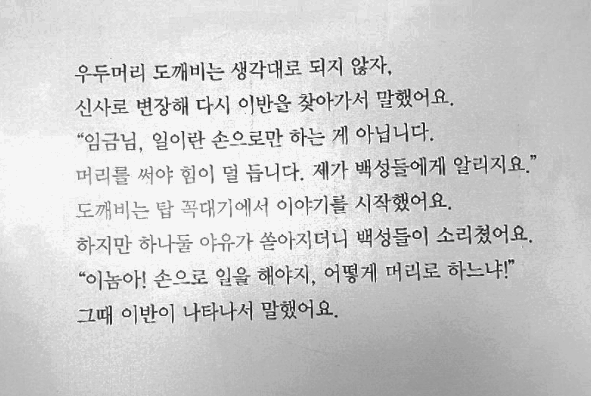 우두머리 도깨비는 생각대로 되지 않자,
신사로 변장해 다시 이반을 찾아가서 말했어요.
“임금님, 일이란 손으로만 하는 게 아닙니다.
머리를 써야 힘이 덜 듭니다. 제가 백성들에게 알리지요.”
도깨비는 탑 꼭대기에서 이야기를 시작했어요.
하지만 하나둘 야유가 쏟아지더니 백성들이 소리쳤어요.
“이놈아! 손으로 일을 해야지, 어떻게 머리로 하느냐!”
그때 이반이 나타나서 말했어요.